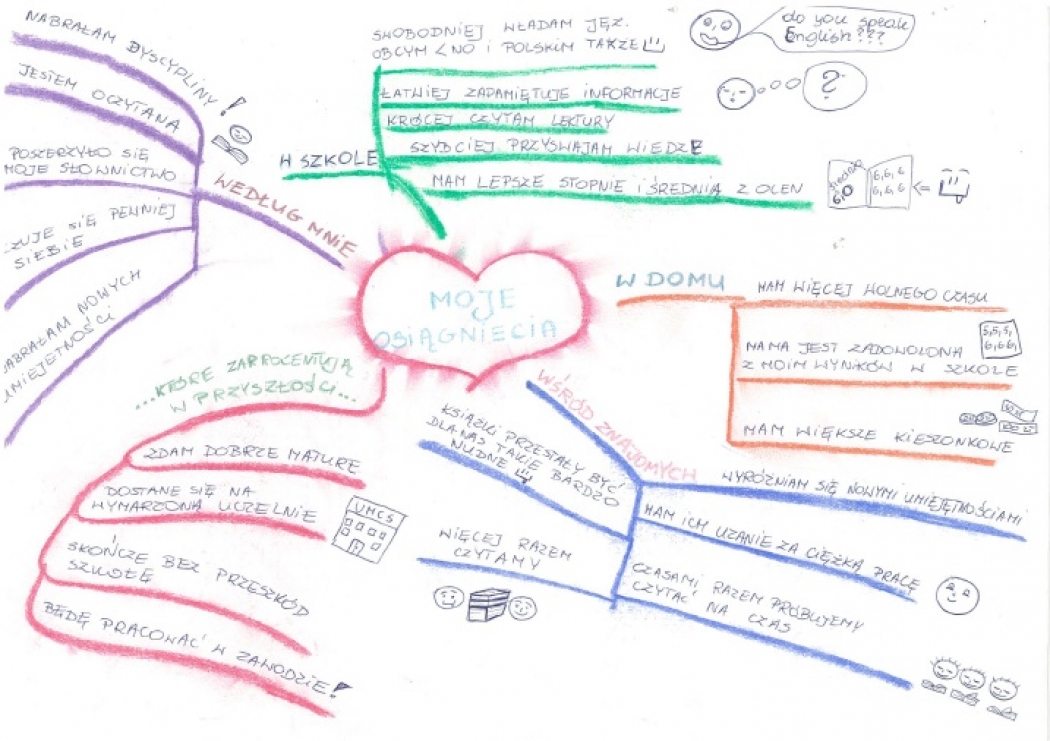 MOJE
OSIĄGNIĘCIA
WEDŁUG MNIE
NABRAŁAM DYSCYPLINY!
JESTEM OCZYTANA
POSZERZYŁO SIĘ
MOJE SŁOWNICTWO
CZUJE SIĘ PEWNIEJ
SIEBIE
NABRAŁAM NOWYCH
UMIEJĘTNOŚCI
W SZKOLE
SWOBODNIEJ WŁADAM JĘZ.
OBCYM < NO I POLSKIM TAKŻE
do you speak
English???
?
ŁATWIEJ ZAPAMIĘTUJE INFORMACJE
KRÓCEJ CZYTAM LEKTURY
SZYBCIEJ PRZYSWAJAM WIEDZE
MAM LEPSZE STOPNIE I ŚREDNIĄ Z OCEN
średnia
6,0
6,6,6
6,6,6
<=
W DOMU
MAM WIĘCEJ WOLNEGO CZASU
MAMA JEST ZADOWOLONA
Z MOIM WYNIKÓW W SZKOLE
5,5,5,
6,6,6,
MAM WIĘKSZE KIESZONKOWE
WŚRÓD ZNAJOMYCH
WYRÓŻNIAM SIĘ NOWYMI UMIEJĘTNOŚCIAMI
MAM ICH UZANIE ZA CIĘŻKĄ PRACĘ
CZASAMI RAZEM PRÓBUJEMY
CZYTAĆ NA
CZAS
KSIĄŻKI PRZESTAŁY BYĆ
DLA NAS TAKIE BARDZO
NUDNE
WIĘCEJ RAZEM
CZYTAMY
...KTÓRE ZAPROCENTUJĄ
W PRZYSZŁOŚCI...
ZDAM DOBRZE MATURE
DOSTANE SIĘ NA
WYMARZONĄ UCZELNIE
UMCS
SKOŃCZE BEZ PRZESZKÓD
SZKOŁĘ
BĘDĘ PRACOWAĆ W ZAWODZIE!